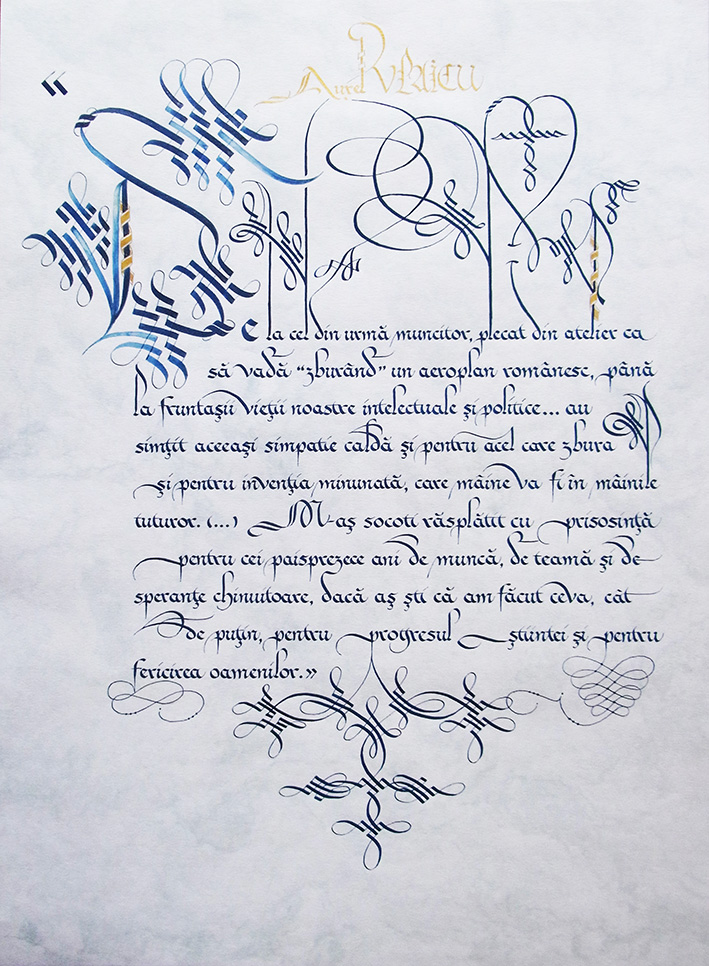 Aurel VLAICU
« De la cel din urmă muncitor, plecat din atelier ca
să vadă "zburând" un aeroplan românesc, până
la fruntaşii vieţii noastre intelectuale şi politice... au
simţit aceeaşi simpatie caldă şi pentru acel care zbura
şi pentru invenţia minunată, care mâine va fi în mâinile
tuturor. (...) M-aş socoti răsplătit cu prisosinţă
pentru cei paisprezece ani de muncă, de teamă şi de
speranţe chinuitoare, dacă aş şti că am făcut ceva, cât
de puţin, pentru progresul ştiintei şi pentru
fericirea oamenilor.»